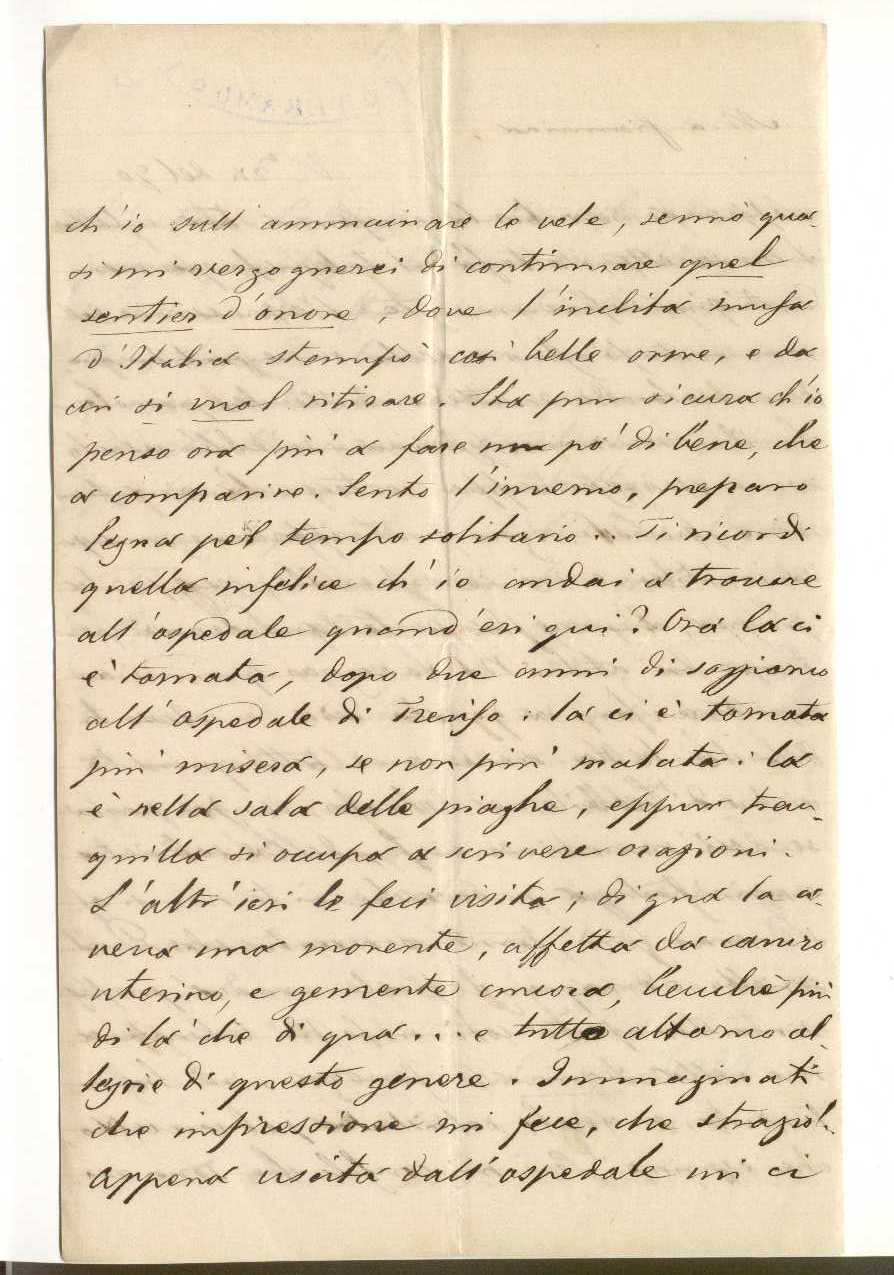 ch'io sull'ammainare le vele, sennò qua-
si mi vergognerei di continuare quel
sentier d'onore, dove l'inclita musa
d'Italia stampò così belle orme, e da
cui si vuol ritirare. Sta pur sicura ch'io
penso ora più a fare un pò di bene, che
a comparire. Sento l'inverno, preparo
legna pel tempo solitario.. Ti ricordi
quella infelice ch'io andai a trovare
all'ospedale quand'eri qui? Ora la ci
è tornata, dopo due anni di soggiorno
all'ospedale di Treviso: la ci è tornata
più misera, se non più malata: la
è nella sala delle piaghe, eppur tran-
quilla si occupa a scrivere orazioni.
L'altr'ieri le feci visita; di qua la a-
veva una morente, affetta da cancro
uterino, e gemente ancora, benchè più
di là che di qua... e tutto attorno al-
legrie di questo genere. Immaginati
che impressione mi fece, che strazio!.
Appena uscita dall'ospedale mi ci